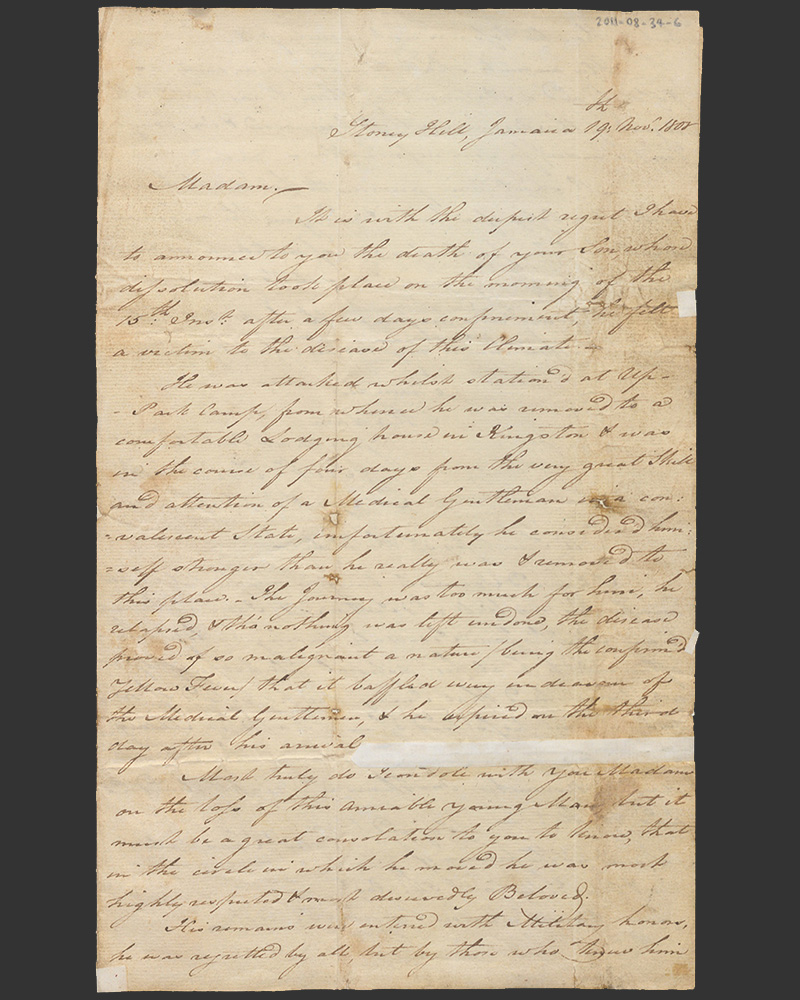 2011-08-34-6
Stoney Hill, Jamaica 19th Nov. 1808
Madam.
It is with the deepest regret I have
to announce to you the death of your Son whose
dissolution took place on the morning of the
15th Inst. after a few days confinement, he fell
a victim to the disease of this Climate.
He was attacked whilst station'd at Up-
- Park Camp, from whence he was removed to a
comfortable Lodging house in Kingston & was
in the course of four days from the very great Skill
and attention of a Medical Gentleman in a con:
=valescent State, unfortunately he consider'd him:
=self stronger than he really was & remov'd to
this place. - The Journey was too much for him, he
relapsed, & tho' nothing was left undone, the disease
proved of so malignant a nature (being the confirm'd
Yellow Fever) that it baffled every endeavour of
the Medical Gentlemen, & he expired on the third
day after his arrival
Most truly do I condole with you Madam
on the loss of this amiable young Man, but it
must be a great consolation to you to know, that
in the circle in which he moved he was most
highly respected & most deservedly Beloved.
His remains were interred with Military honors,
he was regretted by all, but by those who knew him